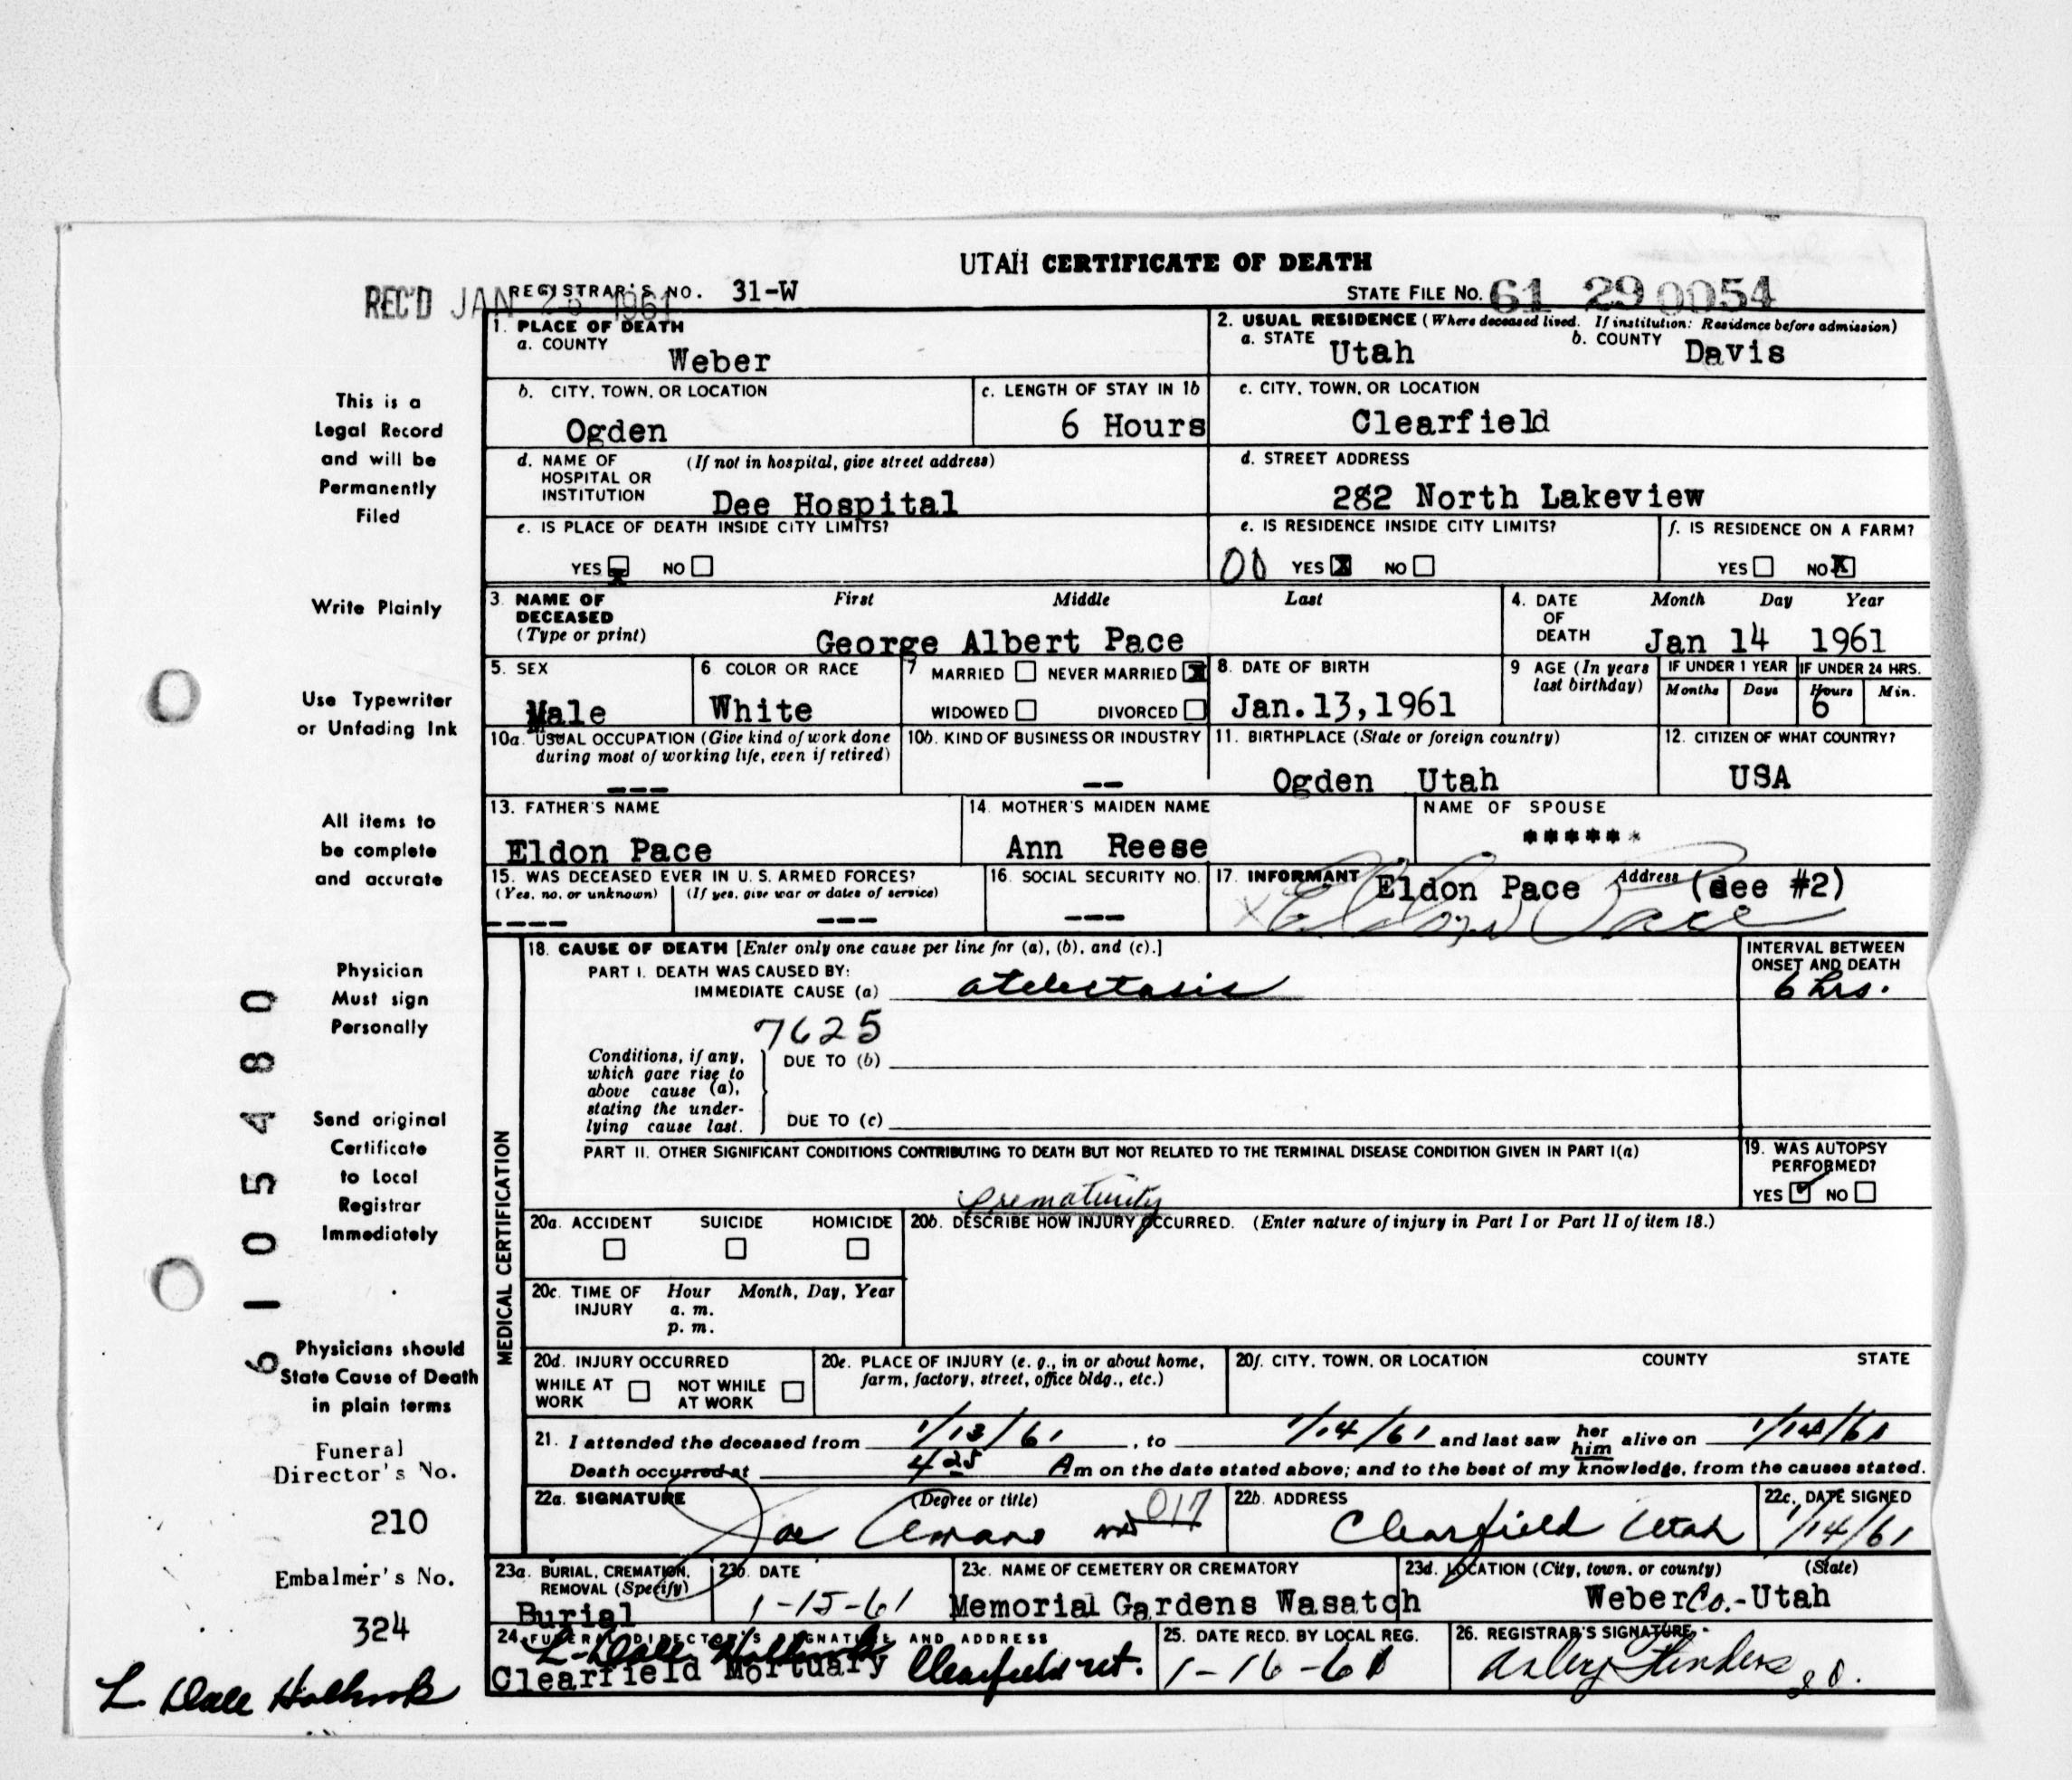 UTAH CERTIFICATE OF DEATH
REC'D JAN 1961 REGISTRAR'S NO. 31-W STATE FILE NO. 61 29 0054
1. PLACE OF DEATH
a. COUNTY
Weber
2. USUAL RESIDENCE (Where deceased lived. If institution: Residence before admission)
a. STATE Utah b. COUNTY Davis
b. CITY, TOWN, OR LOCATION
Ogden
c. LENGTH OF STAY IN 1b
6 Hours
c. CITY, TOWN, OR LOCATION
Clearfield
d. NAME OF HOSPITAL OR INSTITUTION (If not in hospital, give street address)
Dee Hospital
d. STREET ADDRESS
282 North Lakeview
e. IS PLACE OF DEATH INSIDE CITY LIMITS?
YES X NO
e. IS RESIDENCE INSIDE CITY LIMITS?
00 YES X NO
f. IS RESIDENCE ON A FARM?
YES NO X
3. NAME OF DECEASED (Type or print) First Middle Last
George Albert Pace
4. DATE OF DEATH Month Day Year
Jan 14 1961
5. SEX
Male
6. COLOR OR RACE
White
7 MARRIED NEVER MARRIED X
WIDOWED DIVORCED
8. DATE OF BIRTH
Jan.13,1961
9 AGE (In years last birthday)
IF UNDER 1 YEAR IF UNDER 24 HRS.
Months Days Hours Min.
6
10a. USUAL OCCUPATION (Give kind of work done during most of working life, even if retired)
---
10b. KIND OF BUSINESS OR INDUSTRY
--
11. BIRTHPLACE (State or foreign country)
Ogden Utah
12. CITIZEN OF WHAT COUNTRY?
USA
13. FATHER'S NAME
Eldon Pace
14. MOTHER'S MAIDEN NAME
Ann Reese
NAME OF SPOUSE
******
15. WAS DECEASED EVER IN U.S. ARMED FORCES?
(Yes, no, or unknown) (If yes, give war or dates of service)
---- ---
16. SOCIAL SECURITY NO.
---
17. INFORMANT Eldon Pace Address (see #2)
X Eldon Pace
MEDICAL CERTIFICATION
18. CAUSE OF DEATH [Enter only one cause per line for (a), (b), and (c).]
PART I. DEATH WAS CAUSED BY:
IMMEDIATE CAUSE (a) atelectasis
INTERVAL BETWEEN ONSET AND DEATH
6 hrs.
7625
Conditions, if any, which gave rise to above cause (a), stating the underlying cause last.
DUE TO (b)
DUE TO (c)
PART II. OTHER SIGNIFICANT CONDITIONS CONTRIBUTING TO DEATH BUT NOT RELATED TO THE TERMINAL DISEASE CONDITION GIVEN IN PART I(a)
prematurity
19. WAS AUTOPSY PERFORMED?
YES NO
20a. ACCIDENT SUICIDE HOMICIDE
20b. DESCRIBE HOW INJURY OCCURRED. (Enter nature of injury in Part I or Part II of item 18.)
20c. TIME OF INJURY Hour Month, Day, Year
a. m.
p. m.
20d. INJURY OCCURRED
WHILE AT WORK NOT WHILE AT WORK
20e. PLACE OF INJURY (e. g., in or about home, farm, factory, street, office bldg., etc.)
20f. CITY, TOWN, OR LOCATION COUNTY STATE
21. I attended the deceased from 1/13/61, to 1/14/61 and last saw her him alive on 1/14/61
Death occurred at 4 25 Am on the date stated above; and to the best of my knowledge, from the causes stated.
22a. SIGNATURE (Degree or title)
Joe Amano MD 017
22b. ADDRESS
Clearfield Utah
22c. DATE SIGNED
1/14/61
23a. BURIAL, CREMATION, REMOVAL (Specify)
Burial
23b. DATE
1-15-61
23c. NAME OF CEMETERY OR CREMATORY
Memorial Gardens Wasatch
23d. LOCATION (City, town, or county) (State)
Weber Co.-Utah
24. FUNERAL DIRECTOR'S SIGNATURE AND ADDRESS
L Dale Holbrook
Clearfield Mortuary Clearfield ut.
25. DATE RECD. BY LOCAL REG.
1-16-61
26. REGISTRAR'S SIGNATURE
This is a
Legal Record
and will be
Permanently
Filed
Write Plainly
Use Typewriter
or Unfading Ink
All items to
be complete
and accurate
Physician
Must sign
Personally
Send original
Certificate
to Local
Registrar
Immediately
Physicians should
State Cause of Death
in plain terms
Funeral
Director's No.
210
Embalmer's No.
324
L Dale Holbrook
6105480